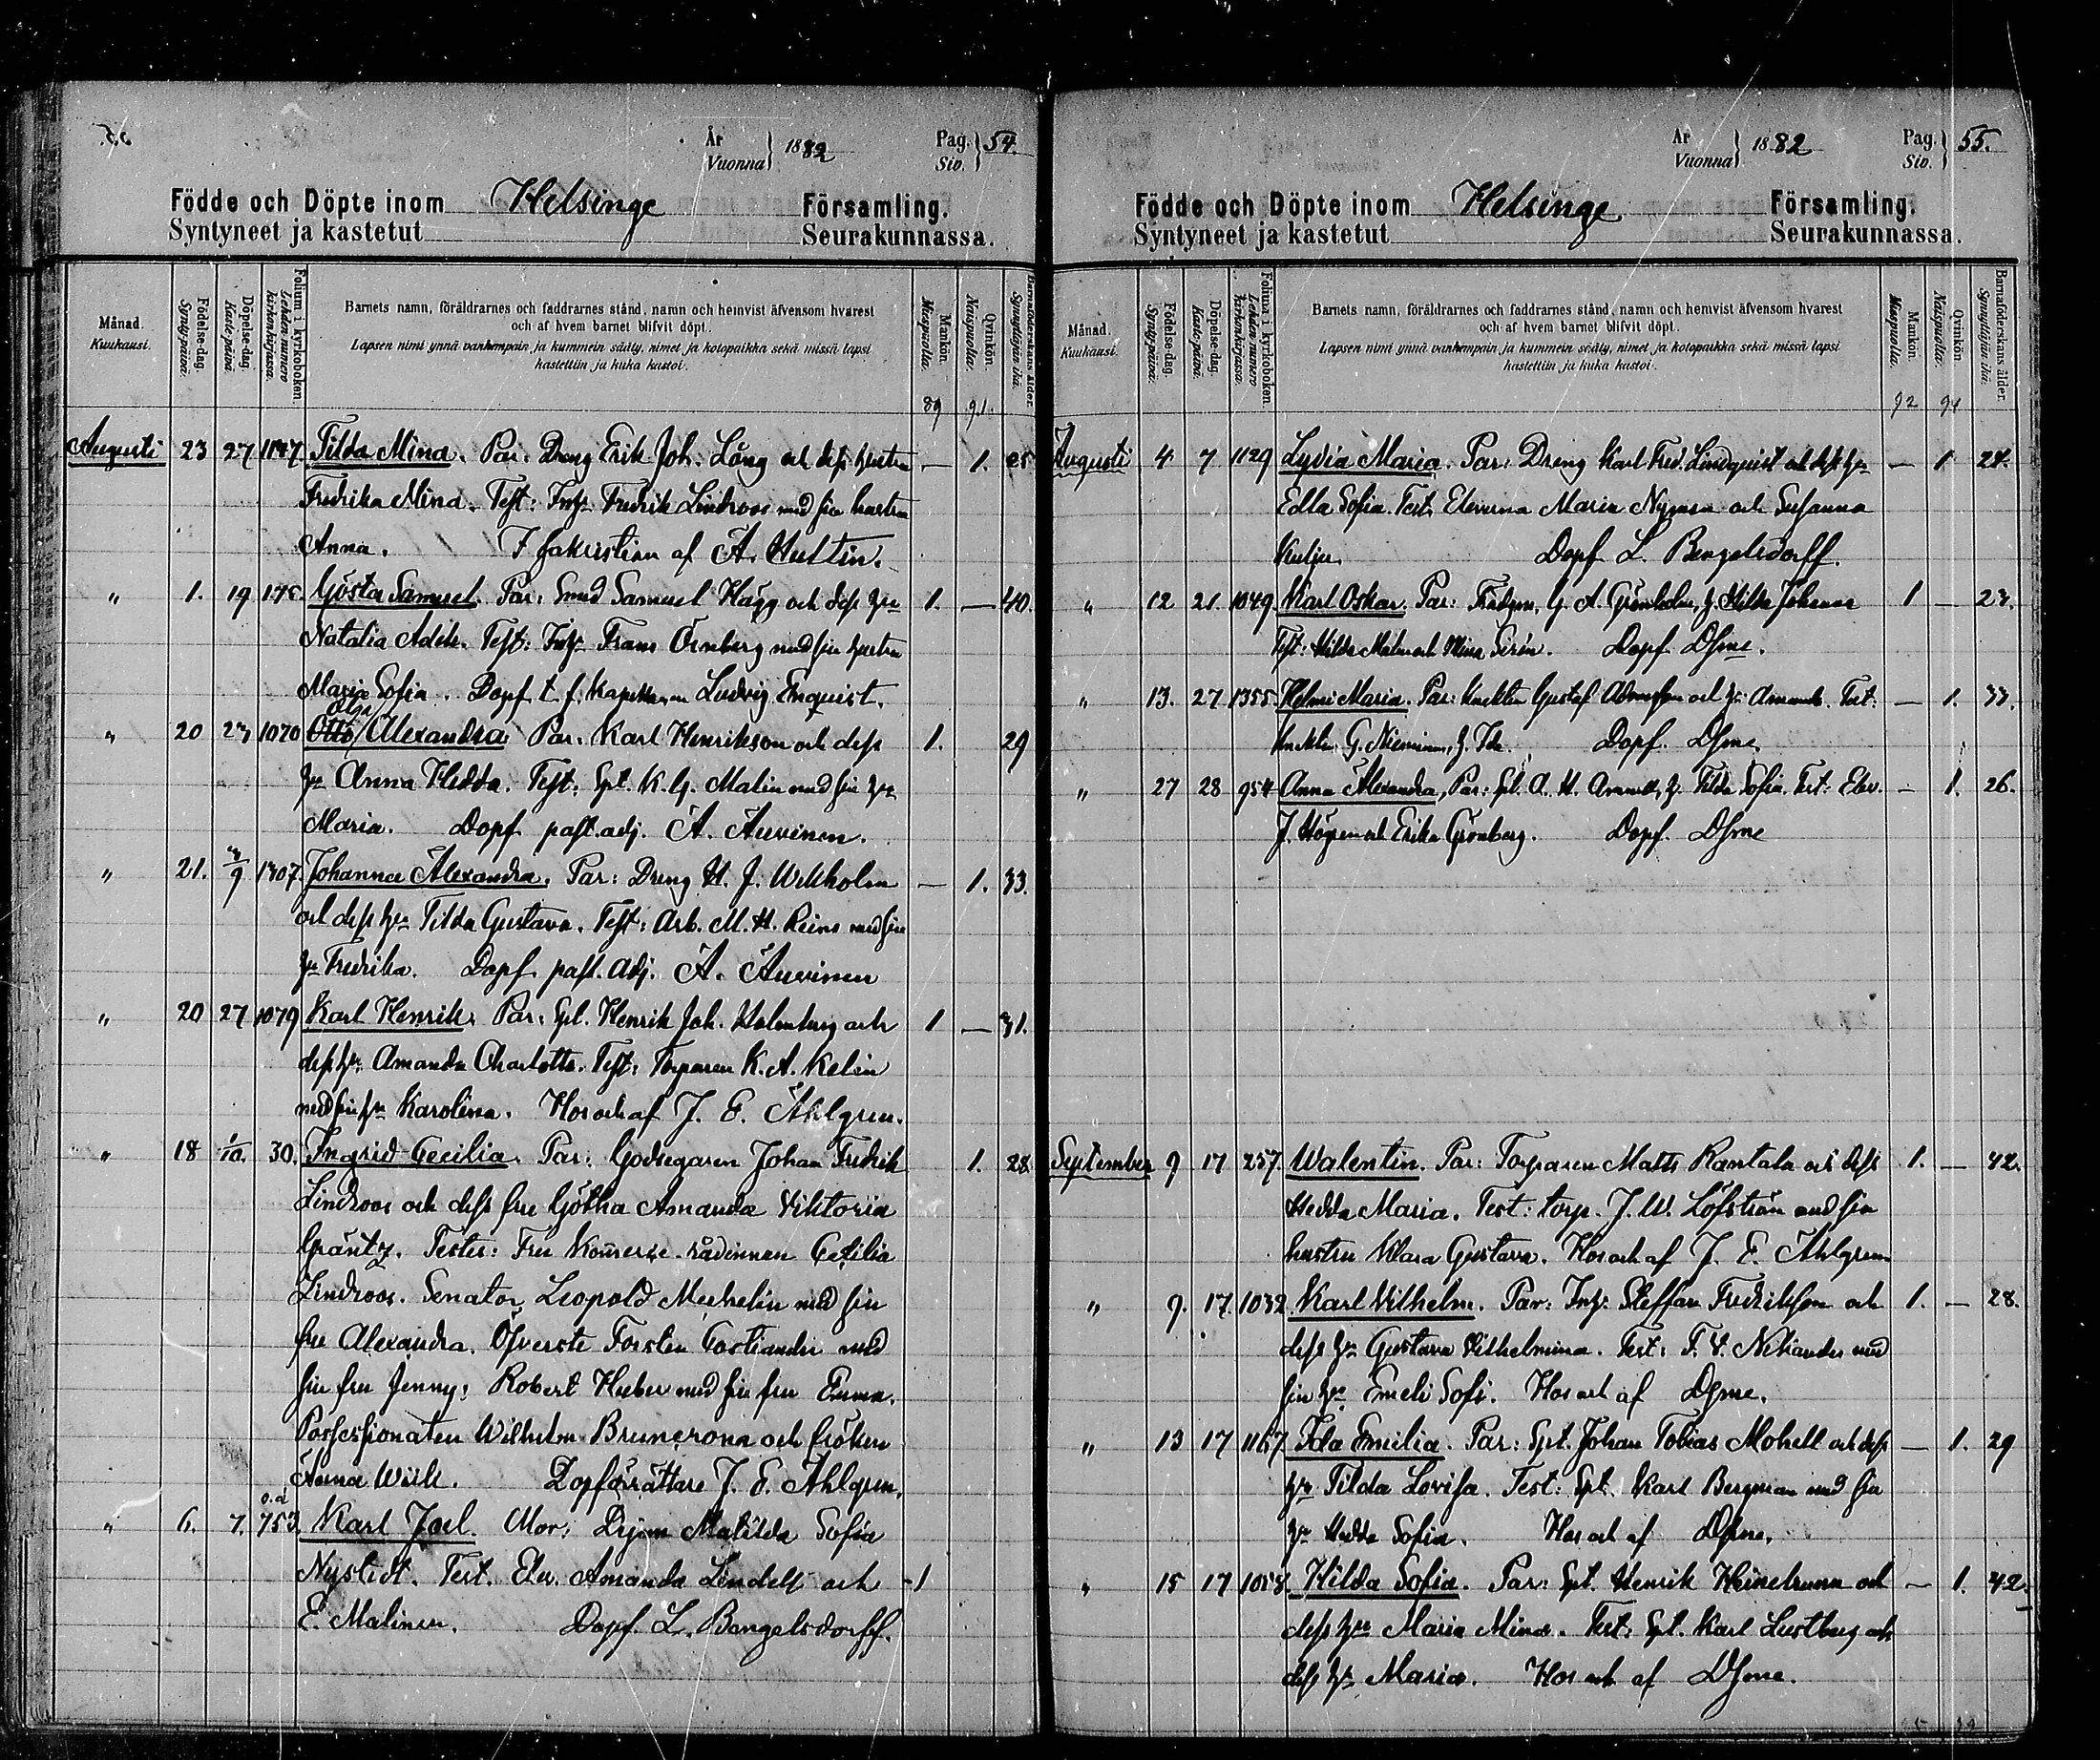 År
Vuonna 1882
Pag.
Siv. 54.
Födde och Döpte inom Helsinge Församling.
Syntyneet ja kastetut Seurakunnassa.
Månad.
Kuukausi.
Födelse-dag.
Syntypäivä.
Döpelse-dag.
Kaste-päivä.
Folium i kyrkoboken.
Lehden numero kirkonkirjassa.
Barnets namn, föräldrarnes och faddrarnes stånd, namn och hemvist äfvensom hvarest
och af hvem barnet blifvit döpt.
Lapsen nimi ynnä vanhempain ja kummein sääty, nimet ja kotopaikka sekä missä lapsi
kastettiin ja kuka kastoi.
Mankön.
Miespuolia.
Qvinkön.
Naispuolia.
Barnaföderskans ålder.
Synnyttäjän ikä.
89 91.
Augusti 23 27 1147 Tilda Mina. Par: Dreng Erik Joh. Lång och dess hustru — 1. 25
Fredrika Mina. Test: Fredrik Lindroos med sin hustru
Anna. I sakristian af A. Hultin.
" 1. 19 178. Gösta Samuel. Par: Smed Samuel Hägg och dess hru 1. — 40.
Natalia Adele. Test: Frans Örnberg med sin hustru
Maria Sofia. Dopf. t. f. Kapellanen Ludvig Enquist.
Olga
" 20 27 1070 Otto Alexandra Par. Karl Henrikson och dess 1. 29
hru Anna Hedda. Test: Spt. K. G. Malin med sin hru
Maria. Dopf. past. adj. A. Auvinen.
" 21. 3/9 1307. Johanna Alexandra. Par: Dreng H. J. Wikholm — 1. 33.
och dess hru Tilda Gustava. Test: Arb. M. H. Reins med sin
hru Fredrika. Dopf. past. adj. A. Auvinen
" 20 27 1079 Karl Henrik. Par: Spt. Henrik Joh. Holmberg och 1 — 31.
dess hru Amanda Charlotta. Test: Torparen K. A. Kelin
med sin hru Karolina. Hos och af J. E. Ahlgren.
" 18 1/10. 30. Ingrid Cecilia. Par: Godsegaren Johan Fredrik 1. 28
Lindroos och dess fru Götha Amanda Viktoria
Gräntz. Testes: Fru Kommerse-rådinnan Cecilia
Lindroos. Senator Leopold Mechelin med sin
fru Alexandra. Öfverste Torsten Costiander med
sin fru Jenny, Robert Huber med sin fru Emma.
Possessionaten Wilhelm Brunerona och fröken
Anna Wiik. Dopförrättare J. E. Ahlgren.
" 6. 7. o.ä 753. Karl Joel. Mor: Pigan Matilda Sofia
Nystedt. Test. Elev. Amanda Lindell och - 1
E. Malinen. Dopf. L. Bengelsdorff.
År
Vuonna 1882
Pag.
Siv. 55.
Födde och Döpte inom Helsinge Församling.
Syntyneet ja kastetut Seurakunnassa.
Månad.
Kuukausi.
Födelse-dag.
Syntypäivä.
Döpelse-dag.
Kaste-päivä.
Folium i kyrkoboken.
Lehden numero kirkonkirjassa.
Barnets namn, föräldrarnes och faddrarnes stånd, namn och hemvist äfvensom hvarest
och af hvem barnet blifvit döpt.
Lapsen nimi ynnä vanhempain ja kummein sääty, nimet ja kotopaikka sekä missä lapsi
kastettiin ja kuka kastoi.
Mankön.
Miespuolia.
Qvinkön
Naispuolia.
Barnaföderskans ålder.
Synnyttäjän ikä.
92 94
Augusti 4 7 1129 Lydia Maria. Par: Dreng Karl Fred. Lindquist och dess hru — 1 24.
Edla Sofia. Test. Eleverna Maria Nyman och Susanna
Dopf L. Bengelsdorff.
" 12 21. 1049 Karl Oskar. Par: G. A. Grönholm, h. Hilda Johanna 1 — 23.
Test: Hilda Malm och Mina Sirén. Dopf. Dsme.
" 13. 27 1355 Helmi Maria. Par: Gustaf och h. Amanda. Test. — 1. 33.
G. Nieminen, h. Ida. Dopf. Dsme.
" 27 28 954 Anna Alexandra, Par: Spt. A. H. h. Tilda Sofia. Test: Elev. — 1. 26.
J. och Erika Grönberg. Dopf. Dsme
September 9 17 257. Walentin. Par: Torparen Matts Rantala och dess 1. — 42.
Hedda Maria. Test: torp. J. W. Löfström med sin
hustru Klara Gustava. Hos och af J. E. Ahlgren
" 9. 17. 1032 Karl Vilhelm. Par: Staffan Fredrikson och 1. — 28.
dess hru Gustava Vilhelmina. Test: F. V. med
sin hru Emeli Sofi. Hos och af Dsme.
" 13 17 1167 Ida Emilia. Par: Spt. Johan Tobias Mohell och dess — 1. 29
hru Tilda Lovisa. Test: Spt. Karl Bergman med sin
hru Hedda Sofia. Hos och af Dsme.
" 15 17 1058 Hilda Sofia. Par: Spt. Henrik och — 1. 42.
dess hru Maria Mina. Test: Spt. Karl Lustberg och
dess hru Maria. Hos och af Dsme.